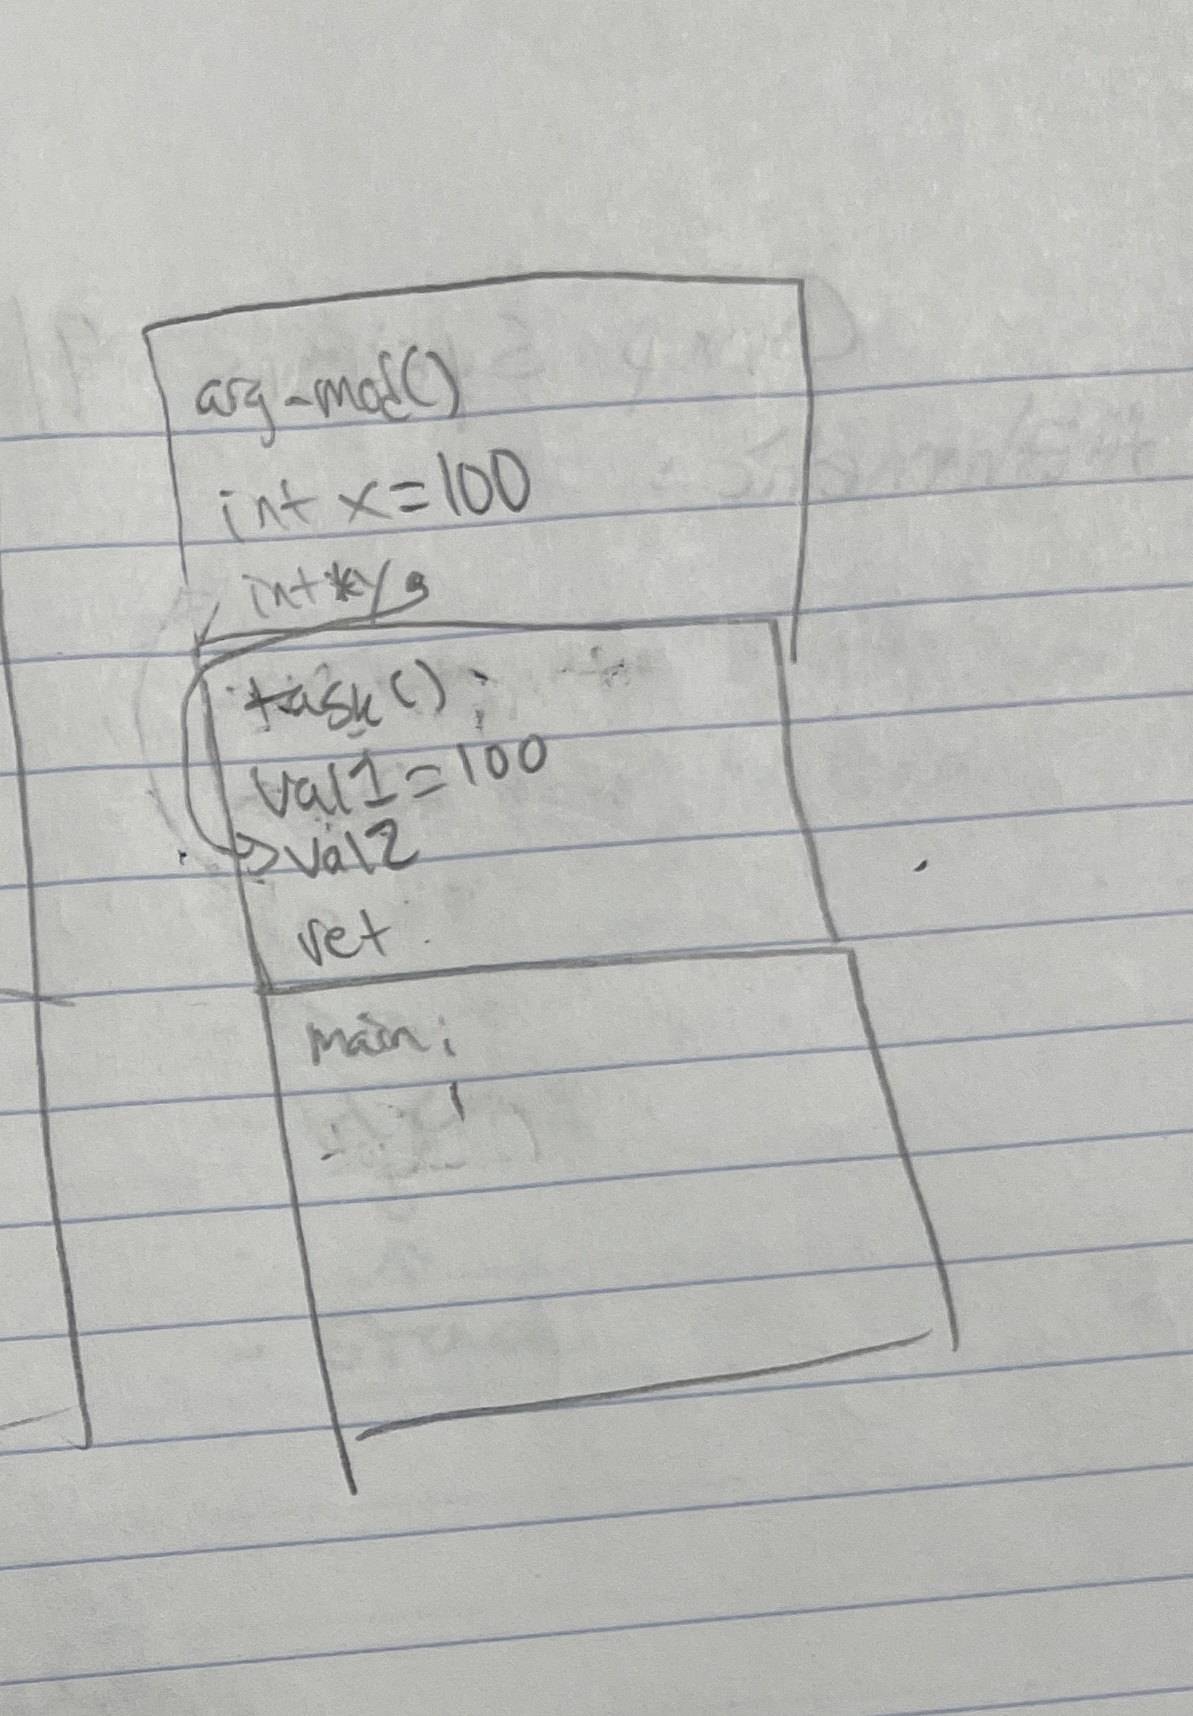 arg-mod()
int x=100
int *y
task():
val1=100
val2
ret
main: